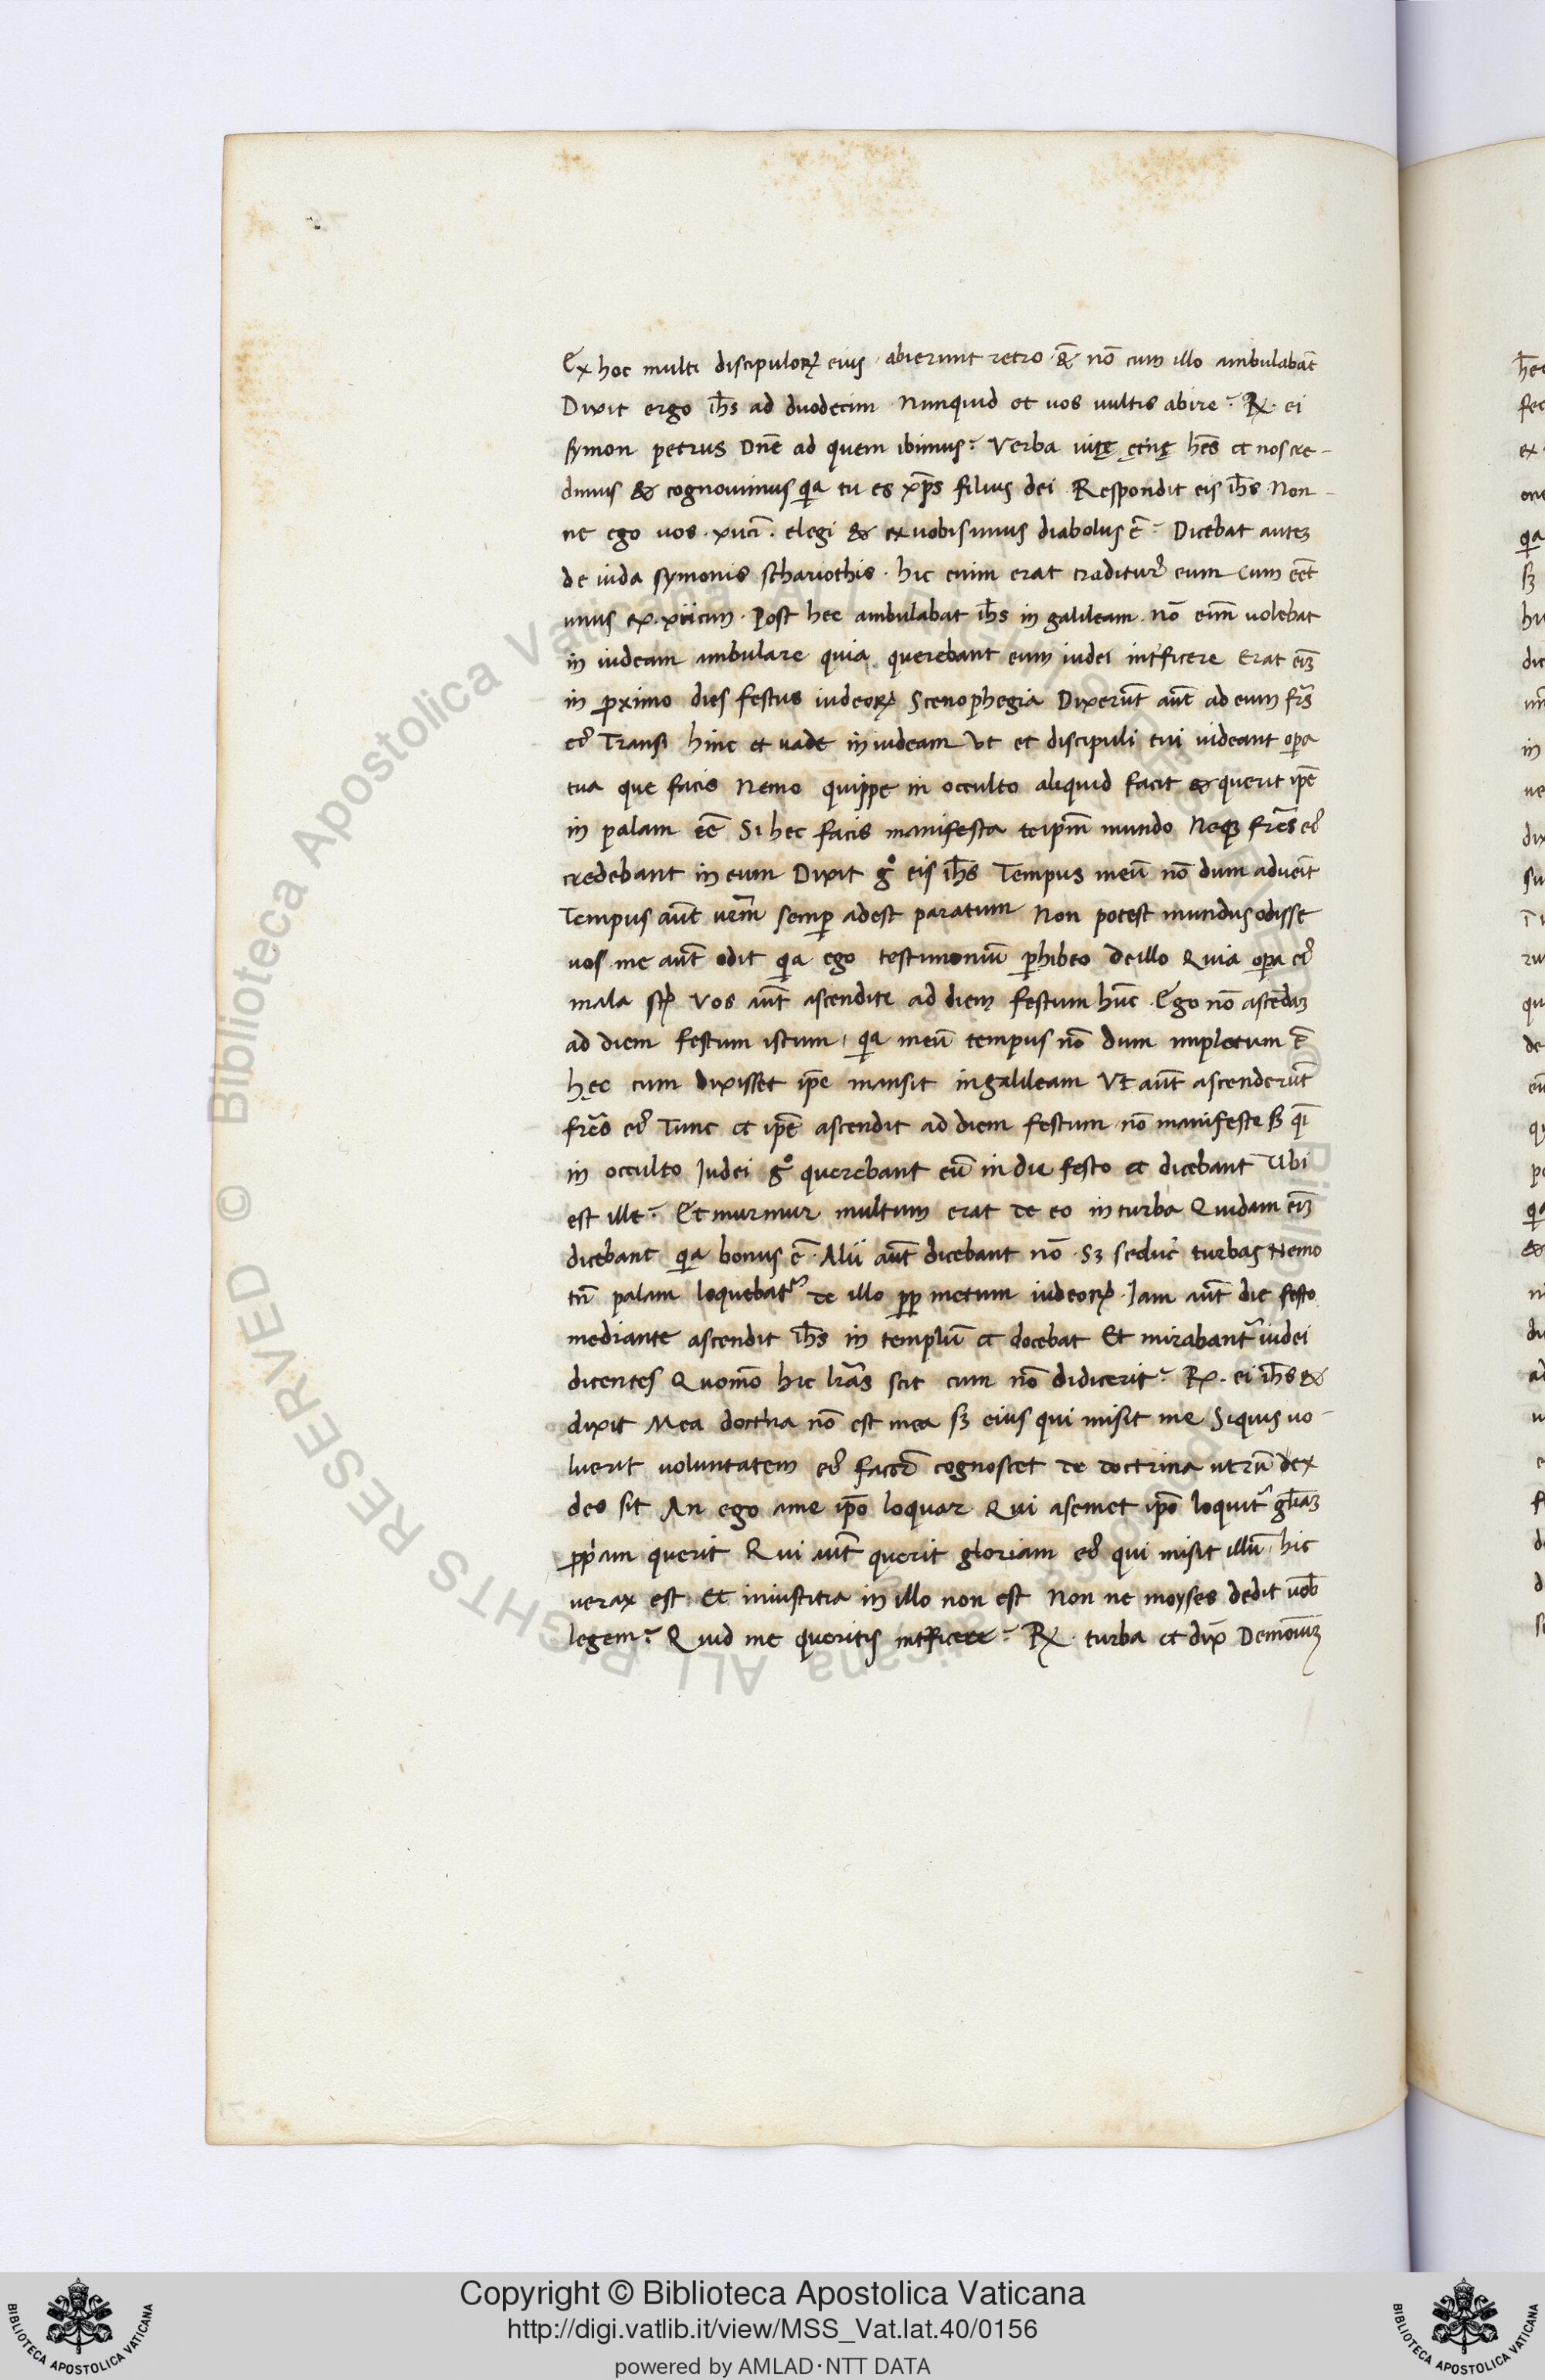 Ex hoc multi discipuloꝝ eius abierunt retro & nō cum illo ambulabāt
Dixit ergo ih̄s ad duodecim Nunquid et uos uultis abire? R͞x. ei
symon petrus Dn̄e ad quem ibimus? Verba uitę ęt̄nę hēs et nos cre-
dimus & cognouimus q̄a tu es xp̄s filius dei. Respondit eis ih̄s Non-
ne ego uos elegi & ex uobis unus diabolus ē? Dicebat autꝫ
de iuda symonis schariothis. hic enim erat traditur᷑ eum Cum eēt
unus ex. Post hec ambulabat ih̄s in galileam. nō eim̄ uolebat
in iudeam ambulare quia querebant eum iudei int̄ficere Erat
in ꝓximo dies festus iudeoꝝ Scenophegia Dixerūt aūt ad eum fr̄s
ei᷑ Transi hinc et uade in iudeam Vt et discipuli tui uideant oꝑa
tua que facis Nemo quippe in occulto aliquid facit & querit ip̄e
in palam eē Si hec facis manifesta teip̄m mundo Neqꝫ fr̄es ei᷑
credebant in eum Dixit gͦ eis ih̄s Tempus meū nō dum aduenīt
Tempus aūt ur̄m semꝑ adest paratum Non potest mundus odisse
uos me aūt odit q̄a ego testimoniū ꝑhibeo de illo Quia oꝑa ei᷑
mala st̄ Vos aūt ascendite ad diem festum hūc. Ego nō ascēdaꝫ
ad diem festum istum, q̄a meū tempus nō dum impletum ē
hęc cum dixisset ip̄e mansit in galileam Vt aūt ascenderūt
fr̄es ei᷑ Tunc et ip̄e ascendit ad diem festum nō manifeste sꝫ q̄i
in occulto Iudei gͦ querebant eū in die festo et dicebant Ubi
est ille? Et murmur multum erat de eo in turba Quidam
dicebant q̄a bonus ē. Alii aūt dicebant nō. Sꝫ seduc̄ turbas Nemo
tn̄ palam loquebat᷑ de illo ꝓꝑ metum iudeoꝝ. Iam aūt die festo
mediante ascendit ih̄s in templū et docebat Et mirabant᷑ iudei
dicentes Quomō hic lr̄as scit cum nō didicerit? R͞x. ei ih̄s &
dixit Mea doct̄na nō est mea sꝫ eius qui misit me Siquis uo-
luerit uoluntatem ei᷑ facer̄ cognoscet de doctrina utrū dex
deo sit An ego a me ip̄o loquar Qui asemet ip̄o loquit᷑ gl̄iaꝫ
ꝓp̄am querit Qui aūt querit gloriam ei᷑ qui misit illū, hic
uerax est Et iniustitia in illo non est Non ne moyses dedit uob̄
legem? Quid me queritis int̄ficere? R͞x. turba et dix̄ Demoniūꝫ
Copyright © Biblioteca Apostolica Vaticana
http://digi.vatlib.it/view/MSS_Vat.lat.40/0156
powered by AMLAD·NTT DATA